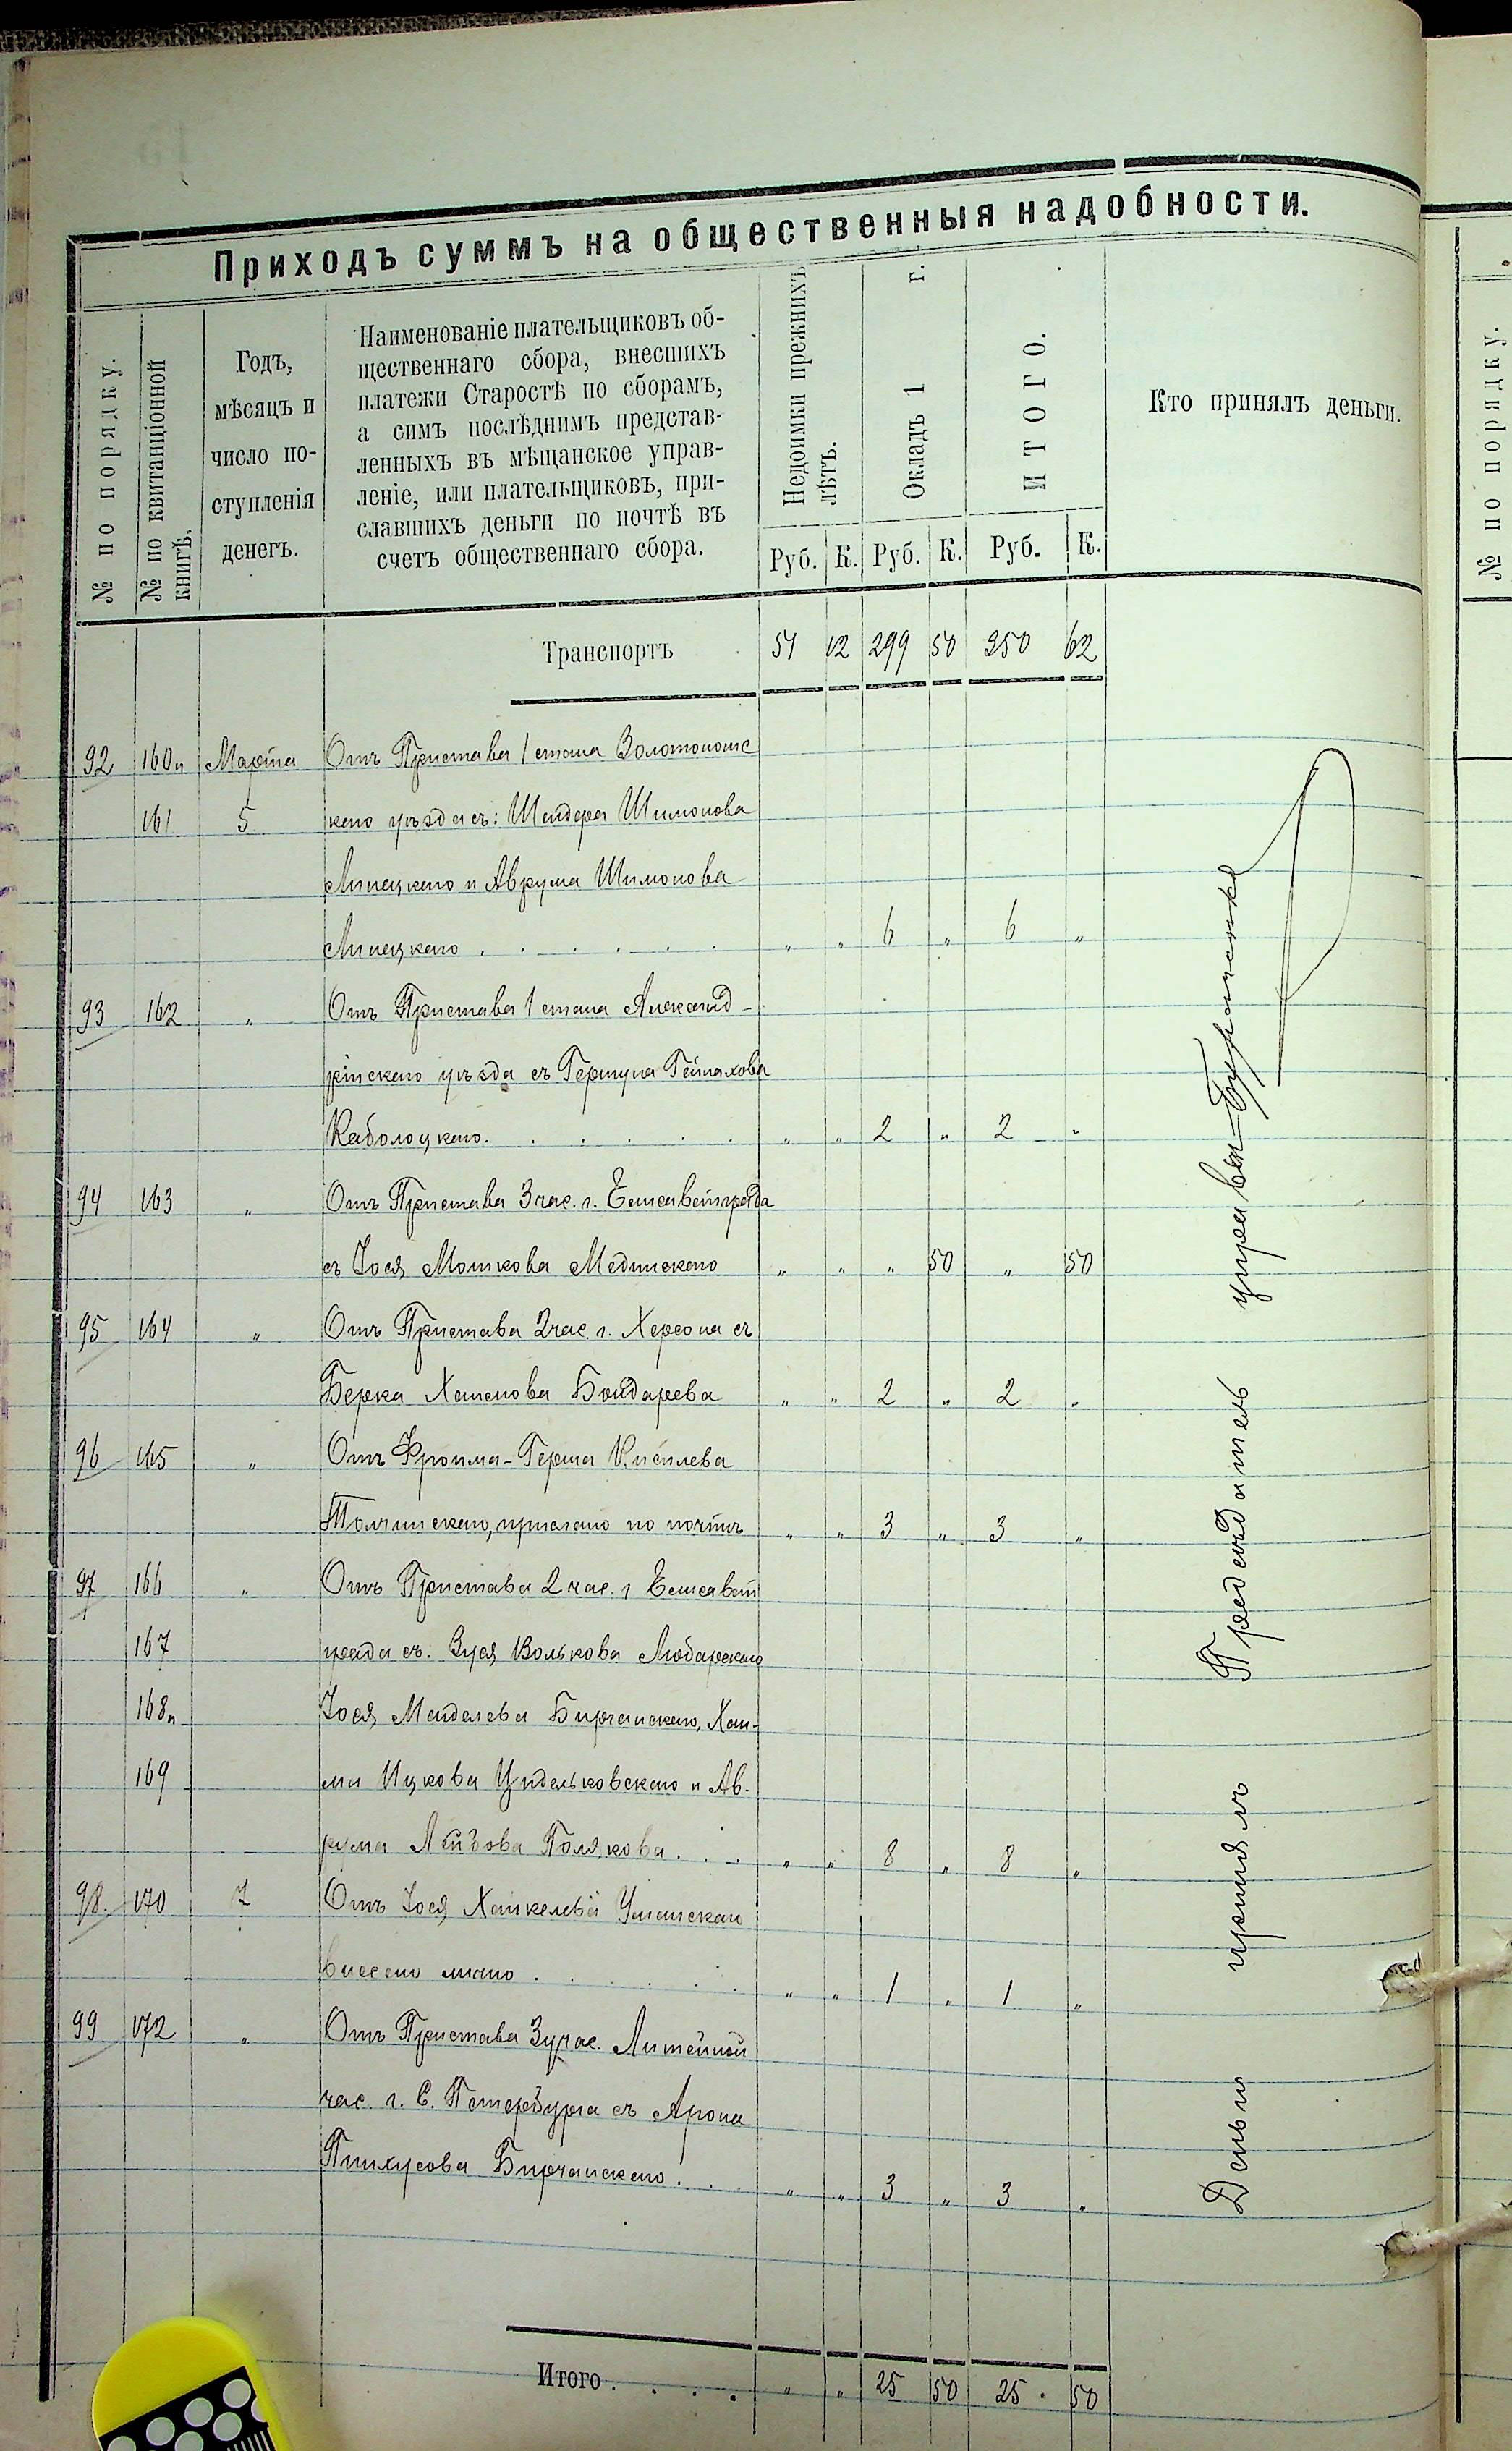 Приходъ суммъ на общественныя надобности.
№ по порядку.
№ по квитанціонной книгѣ.
Годъ, мѣсяцъ и число поступленія денегъ.
Наименованіе плательщиковъ об-
щественнаго сбора, внесшихъ
платежи Старостѣ по сборамъ,
а симъ послѣднимъ представ-
ленныхъ въ мѣщанское управ-
леніе, или плательщиковъ, при-
славшихъ деньги по почтѣ въ
счетъ общественнаго сбора.
Недоимки прежнихъ лѣтъ.
Окладъ 1 г.
ИТОГО.
Кто принялъ деньги.
Руб. К. Руб. К. Руб. К.
Транспортъ 51 12 299 50 350 62
92 160 и Марта Отъ Пристава 1 стана Золотоношс
161 5 каго уѣзда съ: Шендера Шимонова
Липецкаго и Аврума Шимонова
Липецкаго . . . . . . „ „ 6 „ 6 „
93 162 „ Отъ Пристава 1 стана Александ-
рійскаго уѣзда съ Гершуна Гейнахова
Каболоцкаго. . . . . . „ „ 2 „ 2 „
94 163 „ Отъ Пристава 3 час. г. Елисаветграда
съ Іося Мошкова Мединскаго „ „ „ 50 „ 50
95 164 „ Отъ Пристава 2 час. г. Херсона съ
Берка Хаимова Бондарева „ „ 2 „ 2 „
96 165 „ Отъ Фроима-Герша Кисилева
Толчинскаго, прислано по почтѣ „ „ 3 „ 3 „
97 166 „ Отъ Пристава 2 час. г Елисавет
167 града съ. Зуся Волькова Любарскаго
168 и Іося Менделева Бирчанскаго, Хаи-
169 ма Ицкова Цидельковскаго и Ав-
рума Лейбова Полякова . . . „ „ 8 „ 8 „
98. 170 7 Отъ Іося Хайкелева Уманскаго
внесено лично . . . . . „ „ 1 „ 1 „
99 172 „ Отъ Пристава 3 учас. Литейной
час. г. С. Петербурга съ Арона
Пинхусова Бирчанскаго . . . „ „ 3 „ 3 „
Итого . . . . „ „ 25 50 25 50
Деньги принялъ Предсѣдатель управы
№ по порядку.